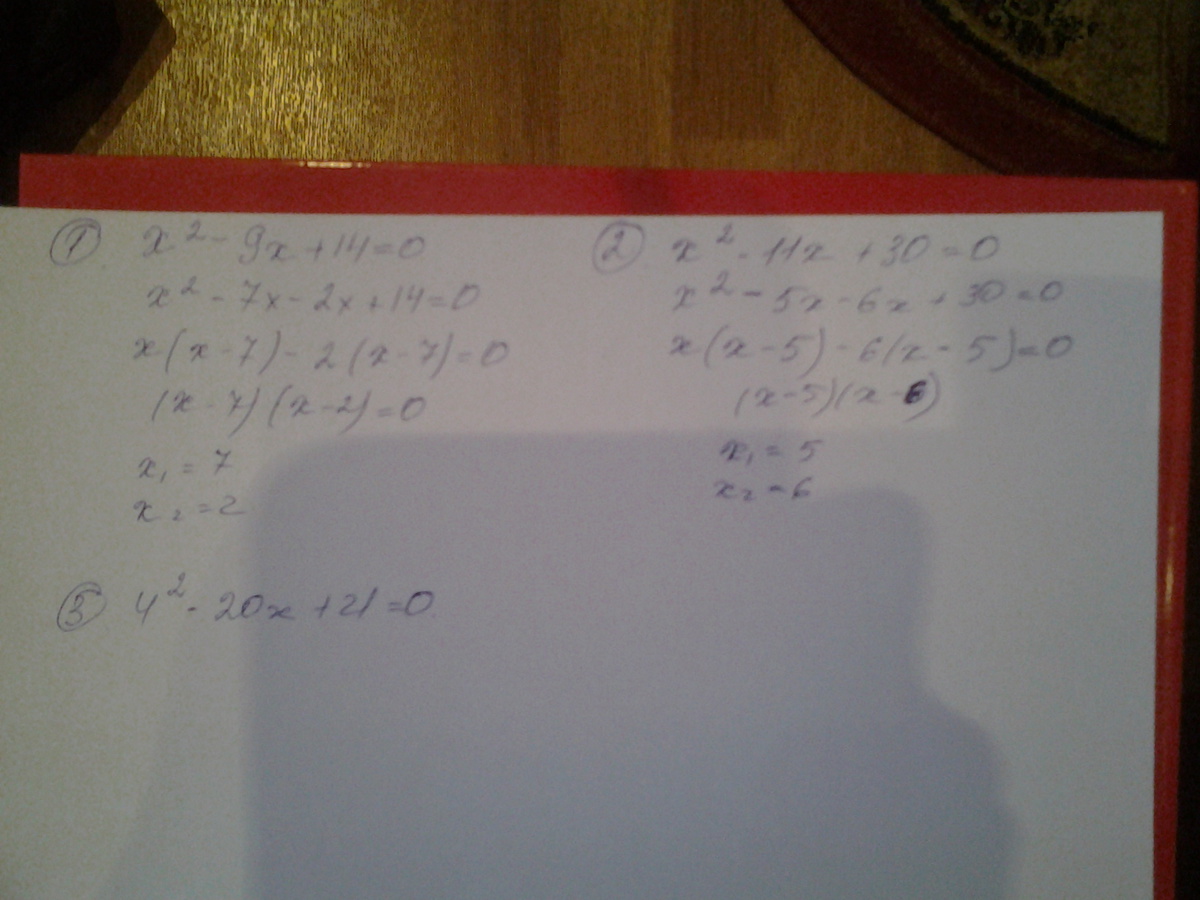 ① x² - 9x + 14 = 0
x² - 7x - 2x + 14 = 0
x(x - 7) - 2(x - 7) = 0
(x - 7)(x - 2) = 0
x₁ = 7
x₂ = 2
② x² - 11x + 30 = 0
x² - 5x - 6x + 30 = 0
x(x - 5) - 6(x - 5) = 0
(x - 5)(x - 6)
x₁ = 5
x₂ = 6
③ 4² - 20x + 21 = 0